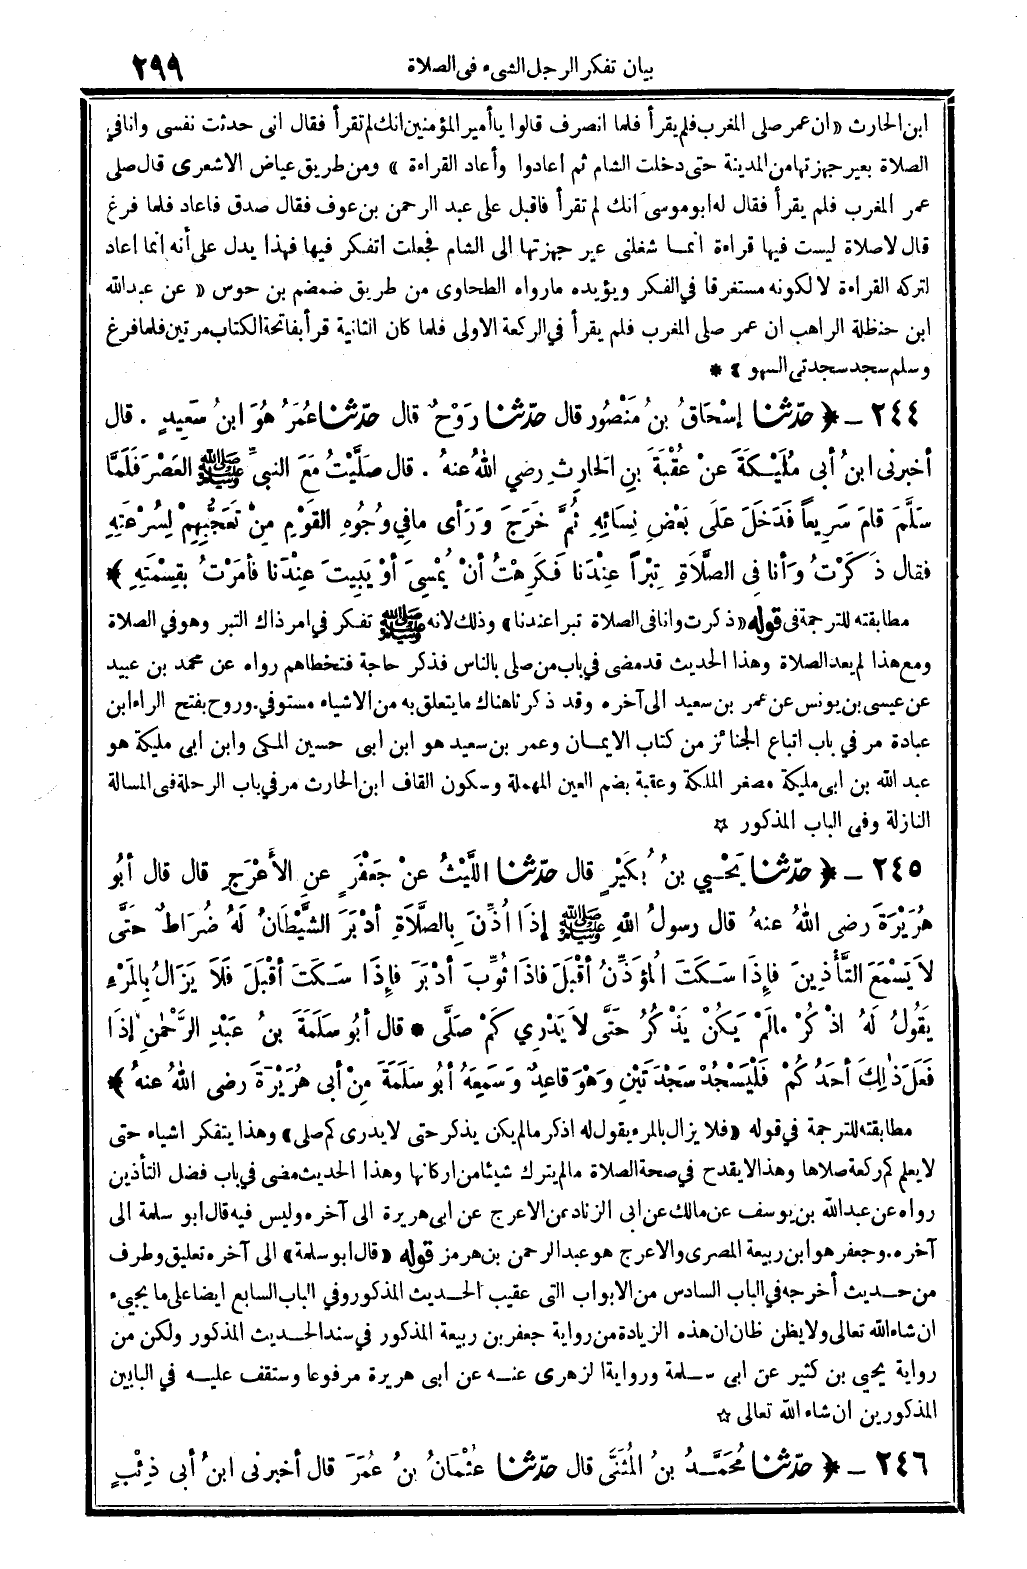 بيان تفكر الرجل الشىء فى الصلاة
٢٩٩
ابن الحارث «ان عمر صلى المغرب فلم يقرأ فلما انصرف قالوا يا أمير المؤمنين انك لم تقرأ فقال انى حدثت نفسى وانا في
الصلاة بعير جهزتها من المدينة حتى دخلت الشام ثم أعادوا وأعاد القراءة » ومن طريق عياض الاشعرى قال صلى
عمر المغرب فلم يقرأ فقال له ابو موسى انك لم تقرأ فاقبل على عبد الرحمن بن عوف فقال صدق فاعاد فلما فرغ
قال لا صلاة ليست فيها قراءة انما شغلنى عير جهزتها الى الشام فجعلت اتفكر فيها فهذا يدل على أنه انما اعاد
لتركه القراءة لا لكونه مستغرقا في الفكر ويؤيده ما رواه الطحاوى من طريق ضمضم بن حوس « عن عبد الله
ابن حنظلة الراهب ان عمر صلى المغرب فلم يقرأ في الركعة الاولى فلما كان الثانية قرأ بفاتحة الكتاب مرتين فلما فرغ
وسلم سجد سجدتى السهو » *
٢٤٤ - ﴿ حدّثنا إِسْحَاقُ بنُ مَنْصُور قال حدّثنا رَوْحٌ قال حدّثنا عُمَرُ هُوَ ابنُ سَعِيدٍ . قال
أخبرنى ابنُ أبى مُلَيْكَةَ عنْ عُقْبَةَ بنِ الحَارِثِ رضي اللهُ عنهُ . قال صَلَّيْتُ مَعَ النبيِّ ﷺ العَصْرَ فَلَمَّا
سَلَّمَ قامَ سَرِيعاً فَدَخَلَ عَلَى بَعْضِ نِسَائِهِ ثُمَّ خَرَجَ وَرَأى ما في وُجُوهِ القَوْمِ مِنْ تَعَجُّبِهِمْ لِسُرْعَتِهِ
فقال ذَكَرْتُ وَأنا فى الصَّلاَةِ تِبْراً عِنْدَنا فَكَرِهْتُ أنْ يُمْسِيَ أوْ يَبِيتَ عِنْدَنا فأمَرْتُ بِقِسْمَتِهِ ﴾
مطابقته للترجمة فى قوله «ذكرت وانا فى الصلاة تبرا عندنا» وذلك لانه ﷺ تفكر في امر ذاك التبر وهو في الصلاة
ومع هذا لم يعد الصلاة وهذا الحديث قد مضى في باب من صلى بالناس فذكر حاجة فتخطاهم رواه عن محمد بن عبيد
عن عيسى بن يونس عن عمر بن سعيد الى آخره وقد ذكرنا هناك ما يتعلق به من الاشياء مستوفي. وروح بفتح الراء ابن
عبادة مر في باب اتباع الجنائز من كتاب الايمان وعمر بن سعيد هو ابن ابى حسين المكى وابن ابى مليكة هو
عبد الله بن ابى مليكة مصغر الملكة وعقبة بضم العين المهملة وسكون القاف ابن الحارث مر في باب الرحلة فى المسالة
النازلة وفى الباب المذكور ☆
٢٤٥ - ﴿ حدّثنا يَحْيي بنُ بُكَيْرٍ قال حدّثنا اللَّيْثُ عنْ جَعْفَرٍ عنِ الأَعْرَجِ قال قال أبُو
هُرَيْرَةَ رضى اللهُ عنهُ قال رسولُ اللهِ ﷺ إذَا أُذِّنَ بِالصَّلاَةِ أدْبَرَ الشَّيْطَانُ لَهُ ضُرَاطٌ حَتَّى
لاَ يَسْمَعَ التَّأْذِينَ فإِذَا سَكَتَ المُؤذِّنُ أقْبَلَ فاذَا ثُوِّبَ أدْبَرَ فإِذَا سَكَتَ أقْبَلَ فَلاَ يَزَالُ بِالمَرْءِ
يَقُولُ لَهُ اذْكُرْ مالَمْ يَكُنْ يَذْكُرُ حَتَّى لاَ يَدْرِي كمْ صَلَّى * قال أبُو سَلَمَةَ بنُ عَبْدِ الرَّحْمٰنِ إذَا
فَعَلَ ذٰلِكَ أحَدُكُمْ فَلْيَسْجُدْ سَجْدَتَيْنِ وَهْوَ قاعِدٌ وَسَمِعَهُ أبُو سَلَمَةَ مِنْ أبى هُرَيْرَةَ رضى اللهُ عنهُ ﴾
مطابقته للترجمة في قوله «فلا يزال بالمرء يقول له اذكر ما لم يكن يذكر حتى لا يدرى كم صلى» وهذا يتفكر اشياء حتى
لا يعلم كم ركعة صلاها وهذا لا يقدح في صحة الصلاة ما لم يترك شيئا من اركانها وهذا الحديث مضى في باب فضل التأذين
رواه عن عبد الله بن يوسف عن مالك عن ابى الزناد عن الاعرج عن ابى هريرة الى آخره وليس فيه قال ابو سلمة الى
آخره. وجعفر هو ابن ربيعة المصرى والاعرج هو عبد الرحمن بن هرمز قوله «قال ابو سلمة» الى آخره تعليق وطرف
من حديث أخرجه في الباب السادس من الابواب التى عقيب الحديث المذكور وفي الباب السابع ايضا على ما يجيء
ان شاء الله تعالى ولا يظن ظان ان هذه الزيادة من رواية جعفر بن ربيعة المذكور في سند الحديث المذكور ولكن من
رواية يحيي بن كثير عن ابى سلمة ورواية الزهرى عنه عن ابى هريرة مرفوعا وستقف عليه في البابين
المذكورين ان شاء الله تعالى ☆
٢٤٦ - ﴿ حدّثنا مُحَمَّدُ بنُ المُثَنَّى قال حدّثنا عُثْمَانُ بنُ عُمَرَ قال أخبرنى ابنُ أبى ذِئْبٍ